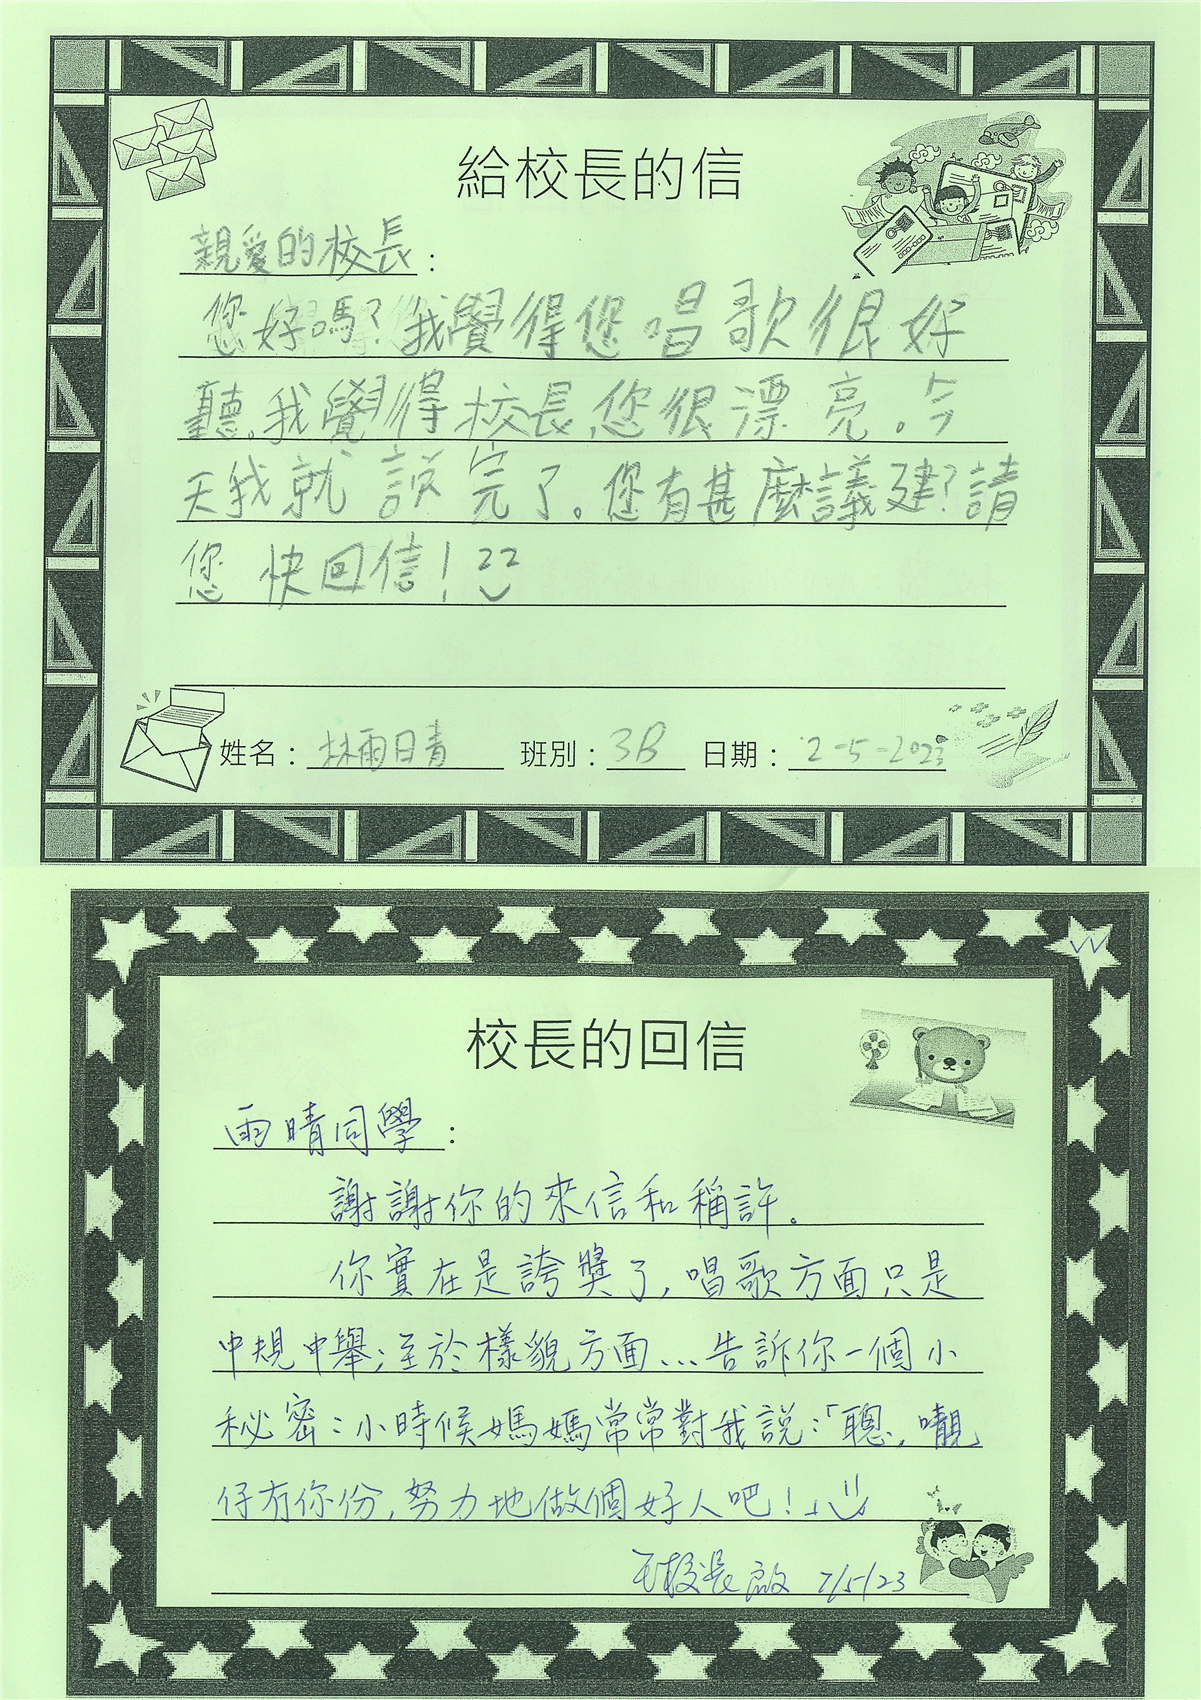 給校長的信
親愛的校長：
您好嗎？我覺得您唱歌很好
聽。我覺得校長您很漂亮。今
天我就說完了。您有甚麼議建？請
您快回信！
姓名：林雨晴 班別：3B 日期：2-5-2023
校長的回信
雨晴同學：
謝謝你的來信和稱許。
你實在是誇獎了，唱歌方面只是
中規中舉；至於樣貌方面…告訴你一個小
秘密：小時候媽媽常常對我說：「聰，嚫
仔冇你份，努力地做個好人吧！」
校長啟 7/5/23